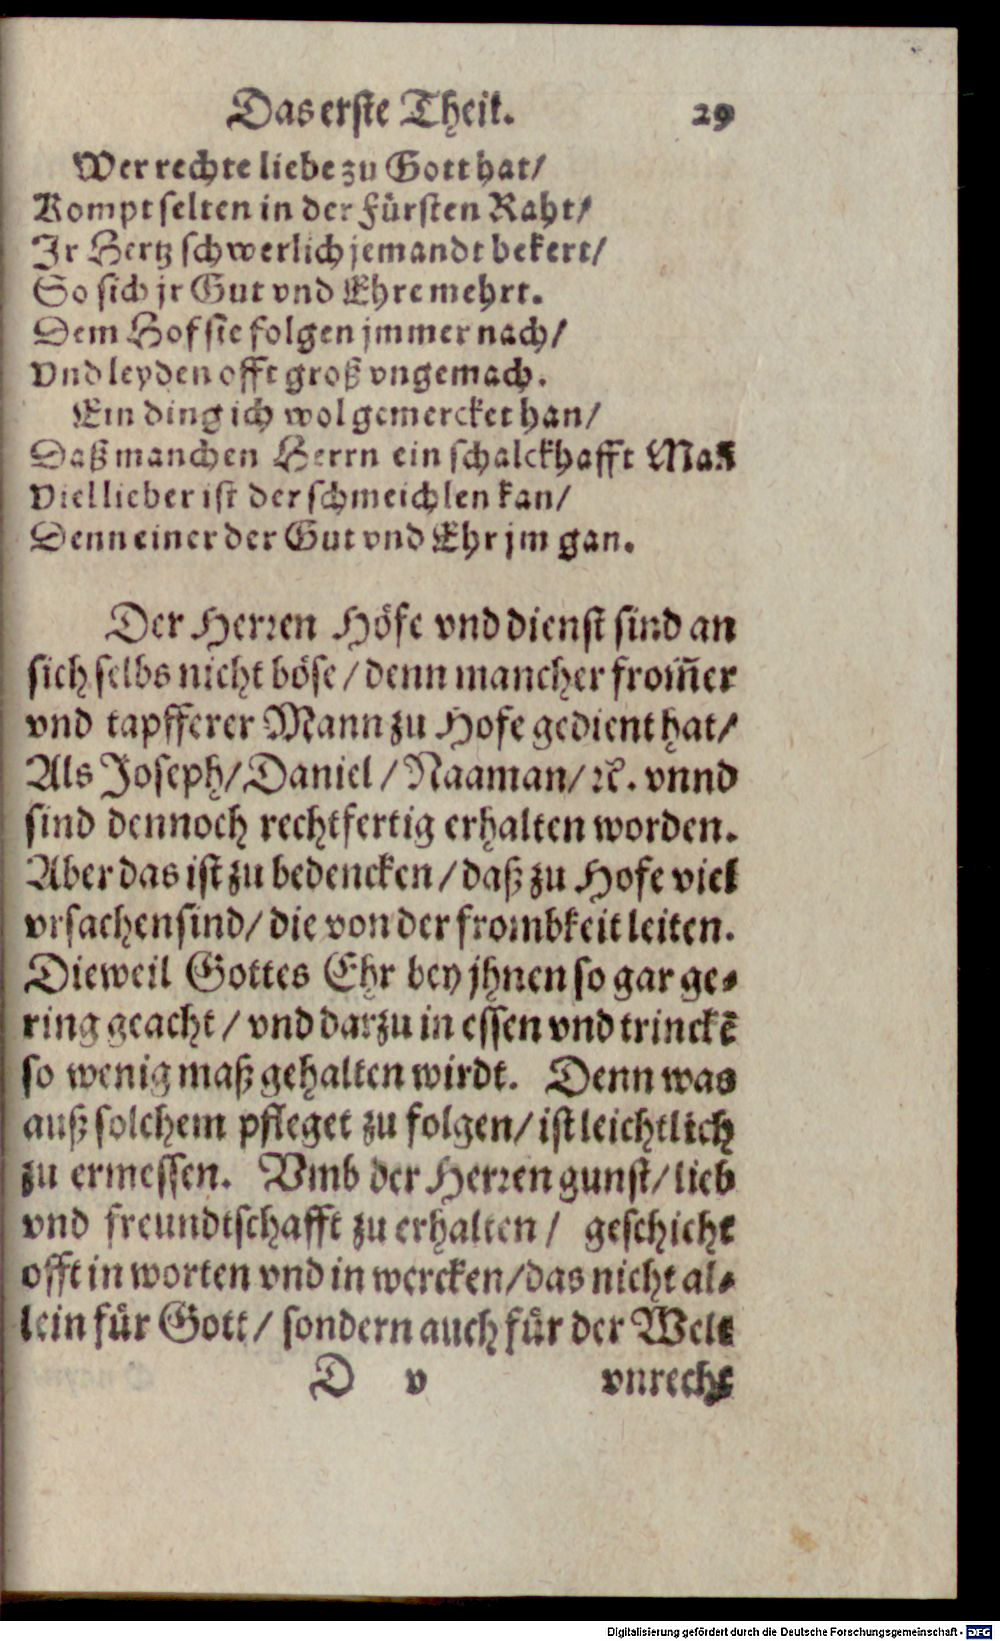 Das erste Theil. 29
Wer rechte liebe zu Gott hat/
Kompt selten in der Fürsten Raht/
Ir Hertz schwerlich jemandt bekert/
So sich jr Gut vnd Ehre mehrt.
Dem Hof sie folgen jmmer nach/
Vnd leyden offt groß vngemach.
Ein ding ich wol gemercket han/
Daß manchen Herrn ein schalckhafft Man
Viel lieber ist der schmeichlen kan/
Denn einer der Gut vnd Ehr jm gan.
Der Herren Höfe vnd dienst sind an
sich selbs nicht böse / denn mancher from̃er
vnd tapfferer Mann zu Hofe gedient hat/
Als Joseph/ Daniel / Naaman/ ꝛc. vnnd
sind dennoch rechtfertig erhalten worden.
Aber das ist zu bedencken / daß zu Hofe viel
vrsachen sind/ die von der frombkeit leiten.
Dieweil Gottes Ehr bey jhnen so gar ge⸗
ring geacht / vnd darzu in essen vnd trinckẽ
so wenig maß gehalten wirdt. Denn was
auß solchem pfleget zu folgen/ ist leichtlich
zu ermessen. Vmb der Herren gunst/ lieb
vnd freundtschafft zu erhalten / geschicht
offt in worten vnd in wercken/ das nicht al⸗
lein für Gott / sondern auch für der Welt
D v vnrecht
Digitalisierung gefördert durch die Deutsche Forschungsgemeinschaft - DFG